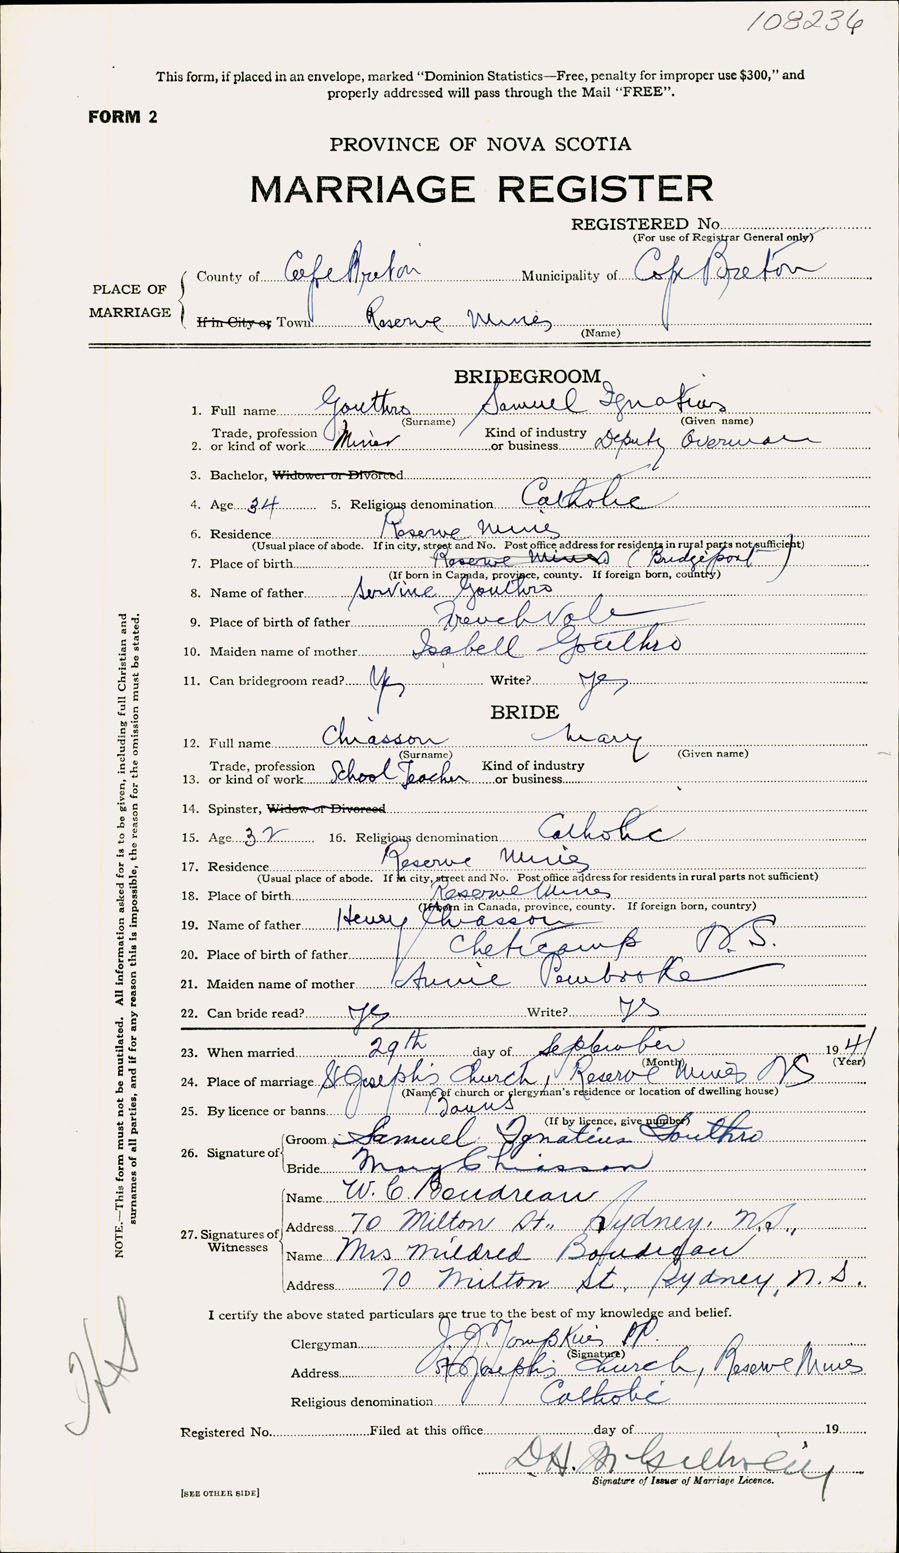 108236
This form, if placed in an envelope, marked "Dominion Statistics—Free, penalty for improper use $300," and
properly addressed will pass through the Mail "FREE".
FORM 2
PROVINCE OF NOVA SCOTIA
MARRIAGE REGISTER
REGISTERED No.
(For use of Registrar General only)
PLACE OF MARRIAGE
County of Cape Breton Municipality of Cape Breton
If in City or Town Reserve Mines
(Name)
BRIDEGROOM
1. Full name Gouthro Samuel Ignatius
(Surname) (Given name)
2. Trade, profession or kind of work Miner Kind of industry or business Deputy Overman
3. Bachelor, Widower or Divorced
4. Age 34 5. Religious denomination Catholic
6. Residence Reserve Mines
(Usual place of abode. If in city, street and No. Post office address for residents in rural parts not sufficient)
7. Place of birth Reserve Mines (Bridgeport)
(If born in Canada, province, county. If foreign born, country)
8. Name of father Gouthro
9. Place of birth of father French Vale
10. Maiden name of mother Isabell Gouthro
11. Can bridegroom read? Yes Write? Yes
BRIDE
12. Full name Chiasson Mary
(Surname) (Given name)
13. Trade, profession or kind of work School Teacher Kind of industry or business
14. Spinster, Widow or Divorced
15. Age 32 16. Religious denomination Catholic
17. Residence Reserve Mines
(Usual place of abode. If in city, street and No. Post office address for residents in rural parts not sufficient)
18. Place of birth Reserve Mines
(If born in Canada, province, county. If foreign born, country)
19. Name of father Henry Chiasson
20. Place of birth of father Cheticamp N.S.
21. Maiden name of mother Annie Pembrooke
22. Can bride read? Yes Write? Yes
23. When married 29th day of September 1941
(Month) (Year)
24. Place of marriage St Joseph's Church, Reserve Mines NS
(Name of church or clergyman's residence or location of dwelling house)
25. By licence or banns Banns
(If by licence, give number)
26. Signature of
Groom Samuel Ignatius Gouthro
Bride Mary Chiasson
27. Signatures of Witnesses
Name W. C. Boudreau
Address 70 Milton St., Sydney. N.S.,
Name Mrs Mildred Boudreau
Address 70 Milton St, Sydney, N.S.
I certify the above stated particulars are true to the best of my knowledge and belief.
Clergyman J. J. Tompkins P.P.
(Signature)
Address St Joseph's Church, Reserve Mines
Religious denomination Catholic
Registered No. Filed at this office day of 19
D.H.
Signature of Issuer of Marriage Licence.
[SEE OTHER SIDE]
NOTE.—This form must not be mutilated. All information asked for is to be given, including full Christian and
surnames of all parties, and if for any reason this is impossible, the reason for the omission must be stated.